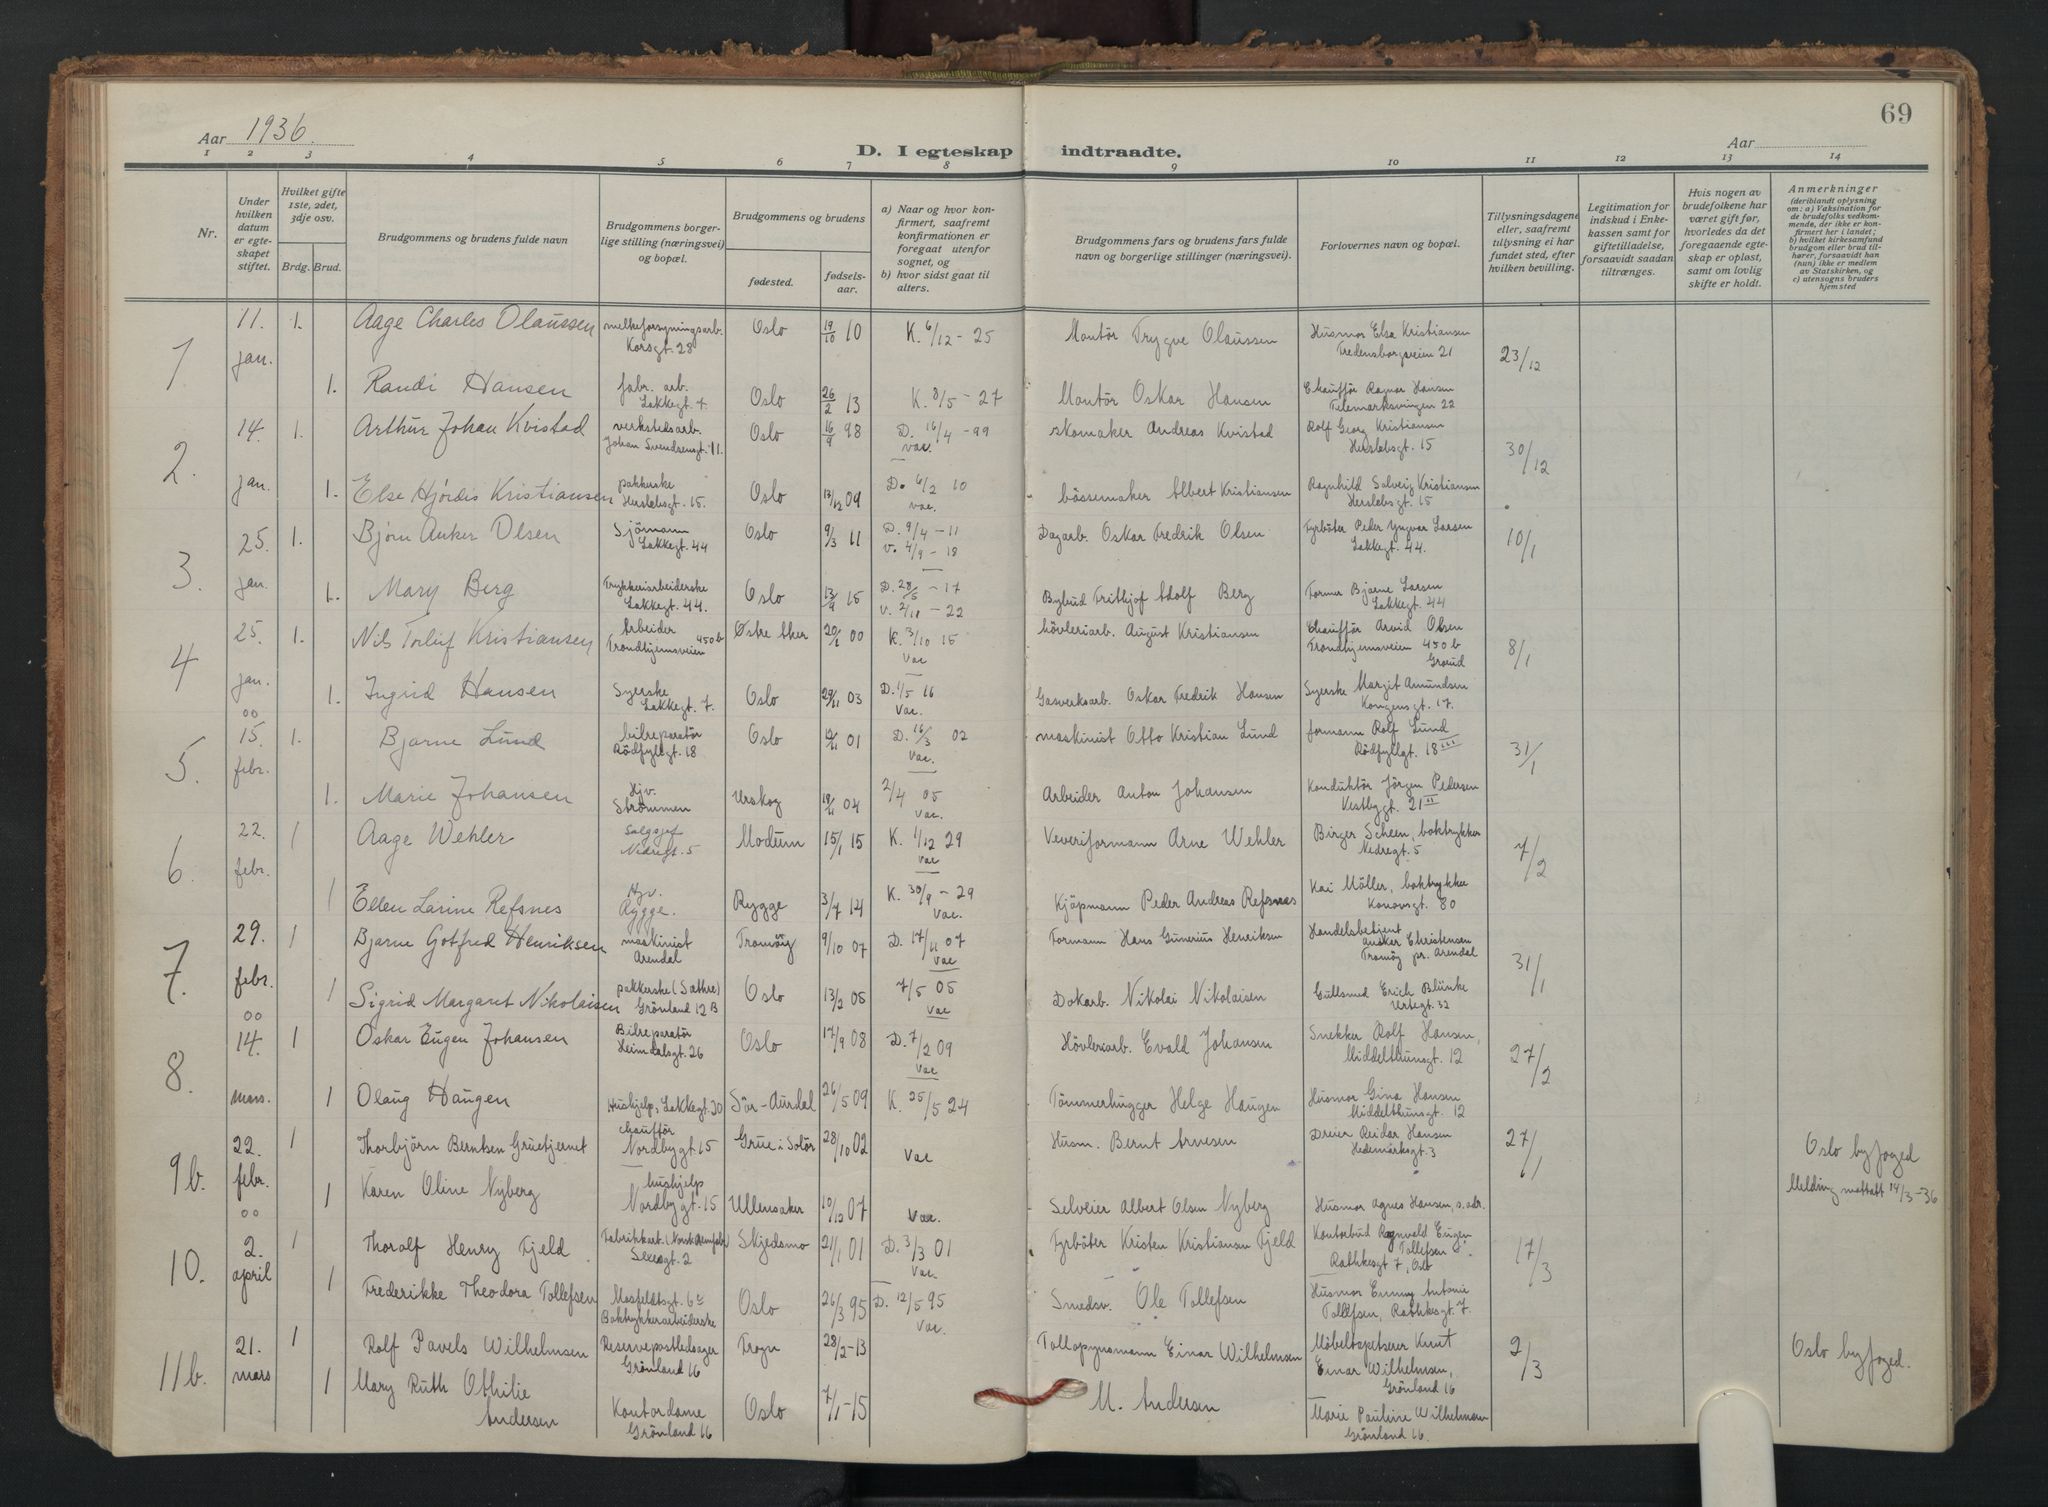 69
Aar 1936.
Aar
D. I egteskap indtraadte.
1 2 3 4 5 6 7 8 9 10 11 12 13 14
Nr.
Under hvilken datum er egteskapet stiftet.
Hvilket gifte 1ste, 2det, 3dje osv.
Brdg. Brud.
Brudgommens og brudens fulde navn
Brudgommens borgerlige stilling (næringsvei) og bopæl.
Brudgommens og brudens
fødested.
fødselsaar.
a) Naar og hvor konfirmert, saafremt konfirmationen er foregaat utenfor sognet, og
b) hvor sidst gaat til alters.
Brudgommens fars og brudens fars fulde navn og borgerlige stillinger (næringsvei).
Forlovernes navn og bopæl.
Tillysningsdagene eller, saafremt tillysning ei har fundet sted, efter hvilken bevilling.
Legitimation for indskud i Enkekassen samt for giftetilladelse, forsaavidt saadan tiltrænges.
Hvis nogen av brudefolkene har været gift før, hvorledes da det foregaaende egteskap er opløst, samt om lovlig skifte er holdt.
Anmerkninger
(deriblandt oplysning om: a) Vaksination for de brudefolks vedkommende, der ikke er konfirmert her i landet;
b) hvilket kirkesamfund brudgom eller brud tilhører, forsaavidt han (hun) ikke er medlem av Statskirken, og
c) utensogns bruders hjemsted
1 11. jan. 1. Aage Charles Olaussen melkeforsyningsarb. Korsgt. 28 Oslo 19/10 10 K. 6/12 - 25 Montör Trygve Olaussen Husmor Elsa Kristiansen Fredensborgveien 21 23/12
1. Randi Hansen fabr. arb. Lakkegt. 7. Oslo 26/2 13 K. 8/5 - 27 Montör Oskar Hansen Chaufför Ragnar Hansen Telemarksvingen 22
2. 14. jan. 1. Arthur Johan Kvistad verkstedsarb. Johan Svendsensgt. 11. Oslo 16/9 98 D. 16/4 - 99 vac. skomaker Andreas Kvistad Rolf Georg Kristiansen Herslebsgt. 15 30/12
1. Else Hjördis Kristiansen pakkerske Herslebsgt. 15. Oslo 13/12 09 D. 6/2 10 vac. bössemaker Albert Kristiansen Ragnhild Solveig Kristiansen Herslebsgt. 15
3. 25. jan. 1. Bjørn Anker Olsen Sjömann Lakkegt. 44 Oslo 9/3 11 D. 9/4 - 11 v. 4/9 - 18 Dagarb. Oskar Fredrik Olsen Fyrböter Peder Yngvar Larsen Lakkegt. 44. 10/1
1. Mary Berg Trykkeriarbeiderske Lakkegt. 44. Oslo 13/9 15 D. 28/5 - 17 v. 2/10 - 22 Bybud Frithjof Adolf Berg Former Bjarne Larsen Lakkegt. 44
4 25. jan. 1. Nils Torleif Kristiansen Arbeider Trondhjemsveien 450 b Østre Aker 20/1 00 K. 3/10 15 Vac hövleriarb. August Kristiansen Chaufför Arvid Olsen Trondhjemsveien 450 b Grorud 8/1
1. Ingrid Hansen Syerske Lakkegt. 7. Oslo 29/11 03 D. 1/5 16 Vac. Gasverksarb. Oskar Fredrik Hansen Syerske Margit Amundsen Kongensgt. 17.
5. 15. febr. 1. Bjarne Lund bilreparatör Rödfyllgt. 18 Oslo 01 D. 16/3 02 Vac. maskinist Otto Kristian Lund formann Rolf Lund Rödfyllgt. 18 III 31/1
1. Marie Johansen Hjv. Strömmen Urskog 04 2/4 05 Vac. Arbeider Anton Johansen Konduktör Jörgen Pedersen Vestbygt. 21 II
6. 22. febr. 1 Aage Wehler Salgsjef Nedregt. 5 Modum 15/1 15 K. 1/12 29 vac Veveriformann Arne Wehler Birger Scheen, boktrykker Nedregt. 5 7/2
1 Ellen Larine Refsnes Hjv. Rygge. Rygge 3/7 14 K. 30/9 - 29 Vac. Kjöpmann Peder Andreas Refsnes Kai Möller, boktrykker Konowsgt. 80
7. 29. febr. 1 Bjarne Gotfred Henriksen maskinist Arendal Tromöy 9/10 07 D. 17/11 07 Vac Formann Hans Gunerius Henriksen Handelsbetjent Anskar Christensen Tromöy pr. Arendal 31/1
1 Sigrid Margaret Nikolaisen pakkerske (Sætre) Grönland 12 B Oslo 13/2 05 7/5 05 Vac Dokarb. Nikolai Nikolaisen Gullsmed Erich Blünke Urtegt. 32
8. 14. mars. 1 Oskar Eugen Johansen Bilreparatör Heimdalsgt. 26 Oslo 17/9 08 D. 7/2 09 Vac Hövleriarb. Evald Johansen Snekker Rolf Hansen, Middelthunsgt. 12 27/2
1 Olaug Haugen Hushjelp, Lakkegt. 20 Sör-Aurdal 26/5 09 K. 25/5 24 Tömmerhugger Helge Haugen Husmor Gina Hansen Middelthunsgt. 12
9 b. 22. febr. 1 Thorbjörn Berntsen Gruetjernet chaufför Nordbygt. 15 Grue i Solör 28/10 02 Vac Husm. Bernt Arnesen Dreier Reidar Hansen Hedemarksgt. 3 27/1 Oslo byfoged
1 Karen Oline Nyberg hushjelp Nordbygt. 15 Ullensaker 10/12 07 Vac. Selveier Albert Olsen Nyberg Husmor Agnes Hansen, s. adr. Melding mottatt 14/3-36
10. 2. april 1 Thoralf Henry Fjeld Fabrikkarb. Selesgt. 2 Skjedsmo 21/1 01 D. 3/3 01 Vac. Fyrböter Kristen Kristiansen Fjeld Kontorbud Ragnvald Eugen Tollefsen Rathkesgt 7, Oslo 17/3
1 Frederikke Theodora Tollefsen Mosfeldtsgt. 6 Boktrykkerarbeiderske Oslo 26/3 95 D. 12/5 95 Vac. Smedsv. Ole Tollefsen Husmor Emmy Antonie Tollefsen, Rathkesgt. 7.
11 b. 21. mars 1 Rolf Pavels Wilhelmsen Reservepostledsager Grönland 16 Frogn 28/2 - 13 Tollopsynsmann Einar Wilhelmsen Möbeltapetserer Knut Einar Wilhelmsen, Grönland 16 2/3 Oslo byfoged.
1 Mary Ruth Othilie Andersen Kontordame Grönland 16 Oslo 7/1 - 15 M. Andersen Marie Pauline Wilhelmsen Grönland 16.